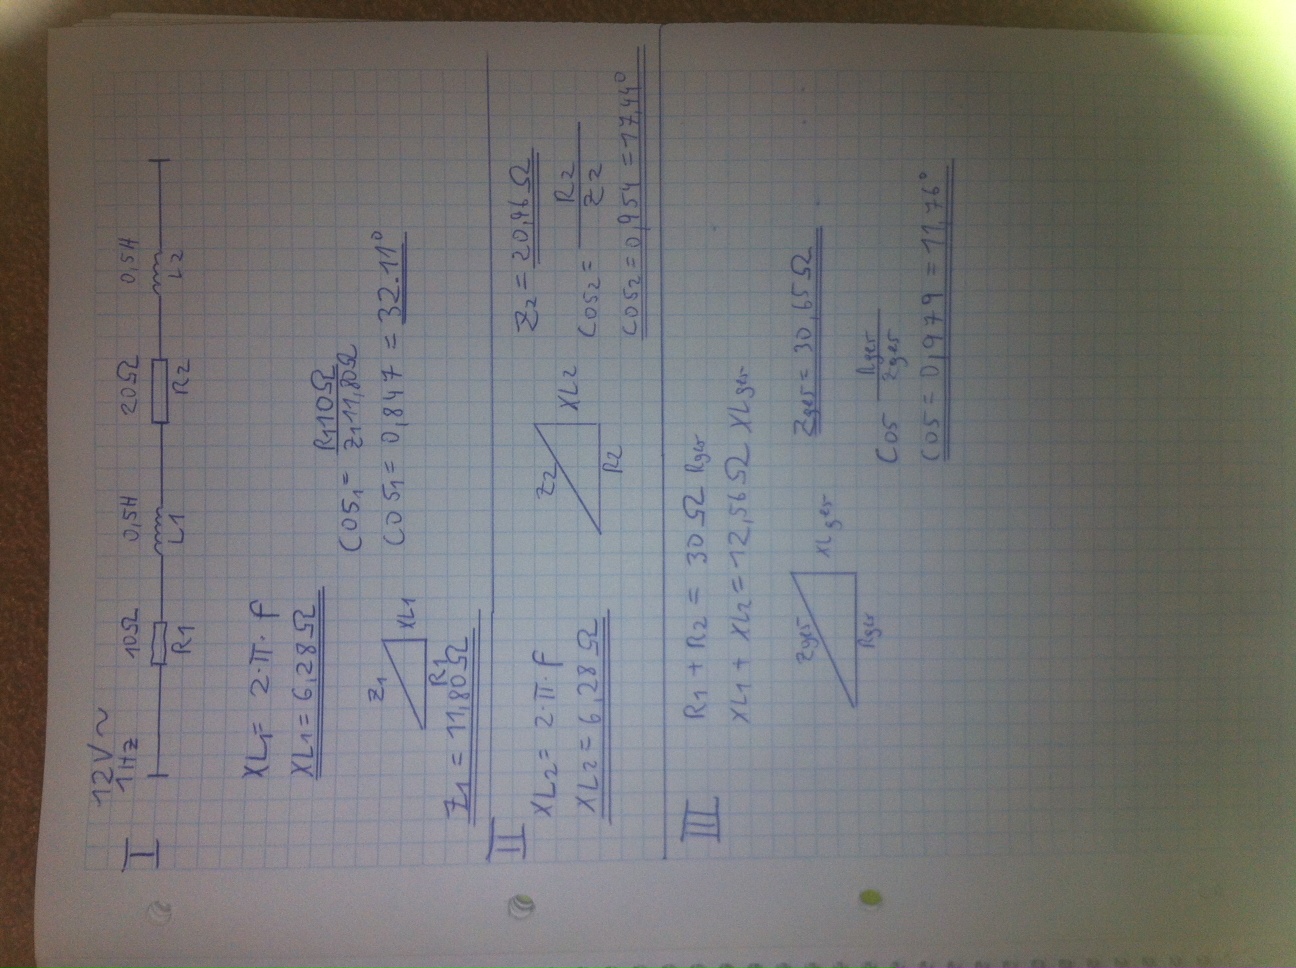 I
12V ~
1Hz
10Ω 0,5H 20Ω 0,5H
R1 L1 R2 L2
XL1= 2·π·f
XL1= 6,28Ω
Z1
XL1
R1
Z1 = 11,80Ω
COS1= R1 10Ω
Z1 11,80Ω
COS1= 0,847 = 32.11°
II
XL2= 2·π·f
XL2= 6,28Ω
Z2
XL2
R2
Z2 = 20,96Ω
COS2= R2
Z2
COS2= 0,954 = 17,44°
III
R1 + R2 = 30Ω Rges
XL1 + XL2= 12,56Ω XLges
Zges
XLges
Rges
Zges= 30,65Ω
COS Rges
Zges
COS= 0,979 = 11,76°